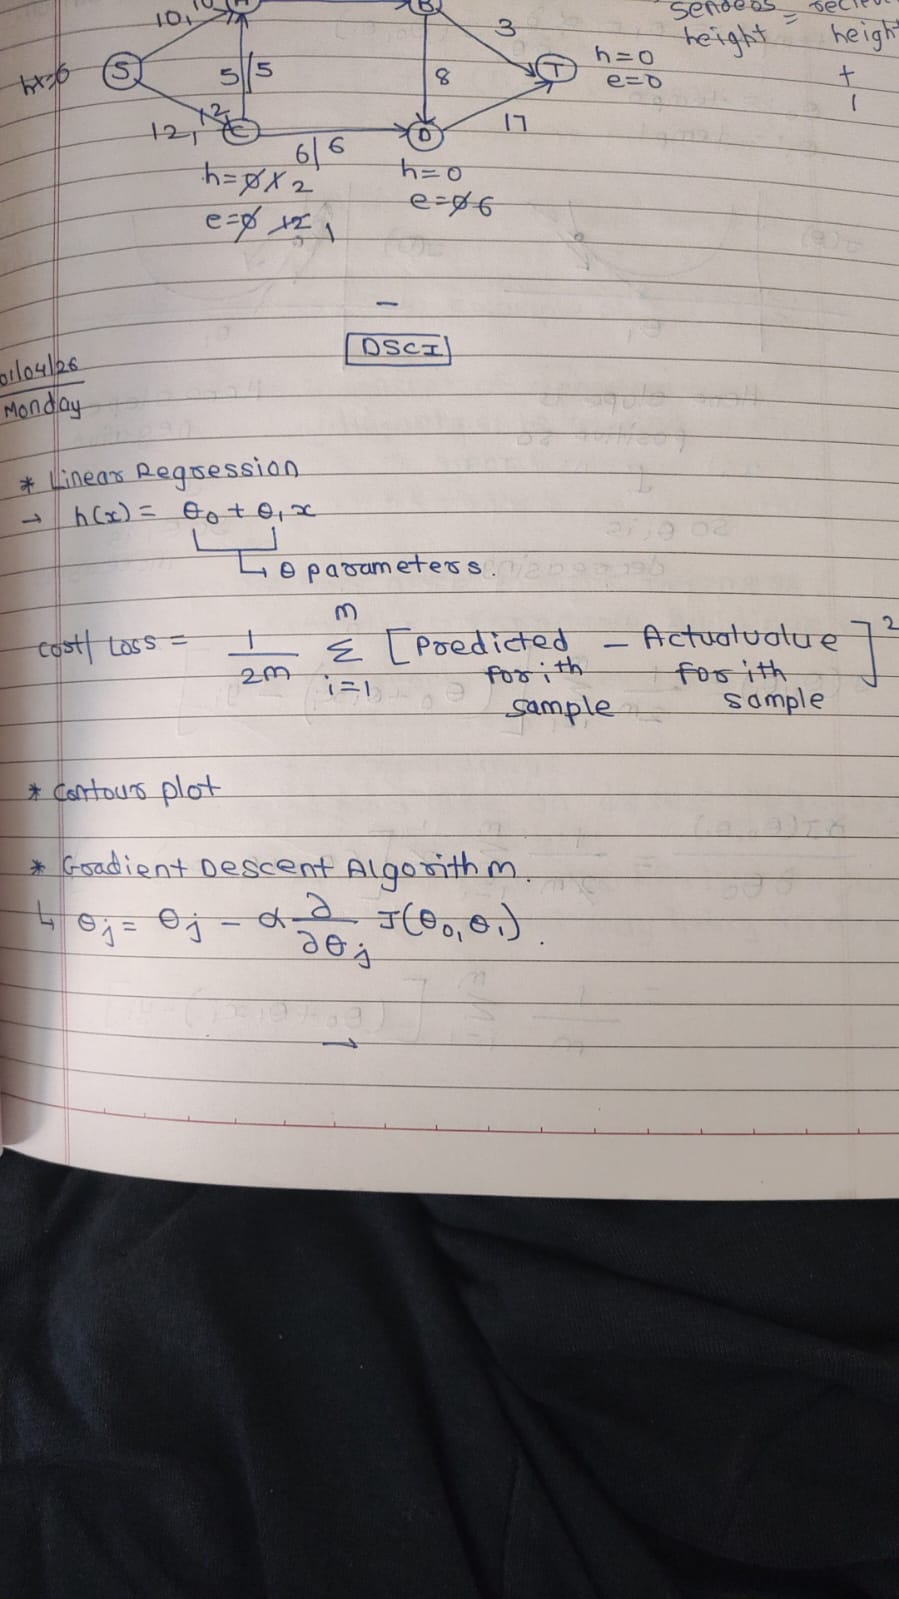 senders = 
height height
+
1
10,
A
B
3
S
5/5
8
T
h=0
e=0
12, 12
C
D
17
6/6
h=0 1 2
h=0
e=0 12 1
e=0 6
DSCI
01/04/26
Monday
* Linear Regression
→ h(x) = θ₀ + θ₁x
↳ θ parameters.
cost/Loss = 1/2m Σ i=1 m [Predicted for ith sample – Actualvalue for ith sample]²
* Contour plot
* Gradient Descent Algorithm.
↳ θj = θj – α ∂/∂θj J(θ₀, θ₁).